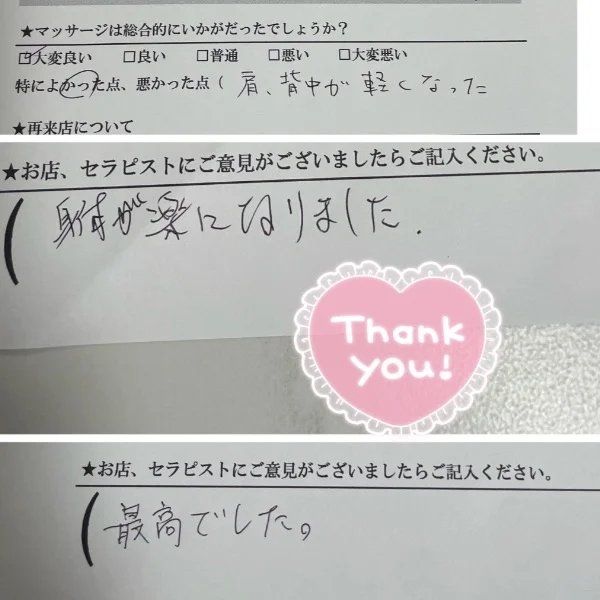 ★マッサージは総合的にいかがだったでしょうか？
☑大変良い　□良い　□普通　□悪い　□大変悪い
特によかった点、悪かった点（ 肩、背中が軽くなった
★再来店について
★お店、セラピストにご意見がございましたらご記入ください。
（ 身体が楽になりました.
Thank
you!
★お店、セラピストにご意見がございましたらご記入ください。
（ 最高でした。